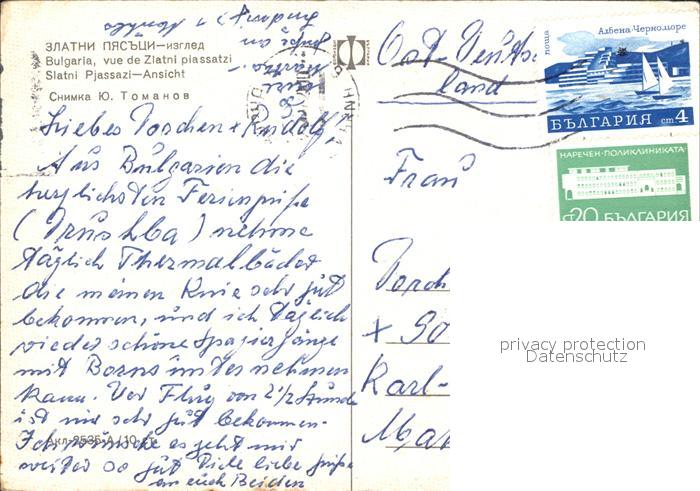 ЗЛАТНИ ПЯСЪЦИ—изглед
Bulgaria, vue de Zlatni piassatzi
Slatni Pjassazi—Ansicht
Снимка Ю. Томанов
Liebes Dorchen + Rudolf,
Aus Bulgarien die
herzlichsten Feriengrüße
(Drushba) nehme
täglich Thermalbäder
die meinen Knie sehr gut
bekommen, und ich täglich
wieder schöne Spaziergänge
mit Boris unternehmen
kann. Der Flug von 2 1/2 Stunde
ist mir sehr gut bekommen.
Ich wünsche es geht mir
weiter so gut Viele liebe Grüße
an euch Beiden
Акл-2535-А/10 ст.
Ost-Deutsch
land
Frau
Dorch
+
Karl-
Ma
поща
Албена-Черноморе
БЪЛГАРИЯ ст 4
НАРЕЧЕН-ПОЛИКЛИНИКАТА
20 БЪЛГАРИЯ
privacy protection
Datenschutz